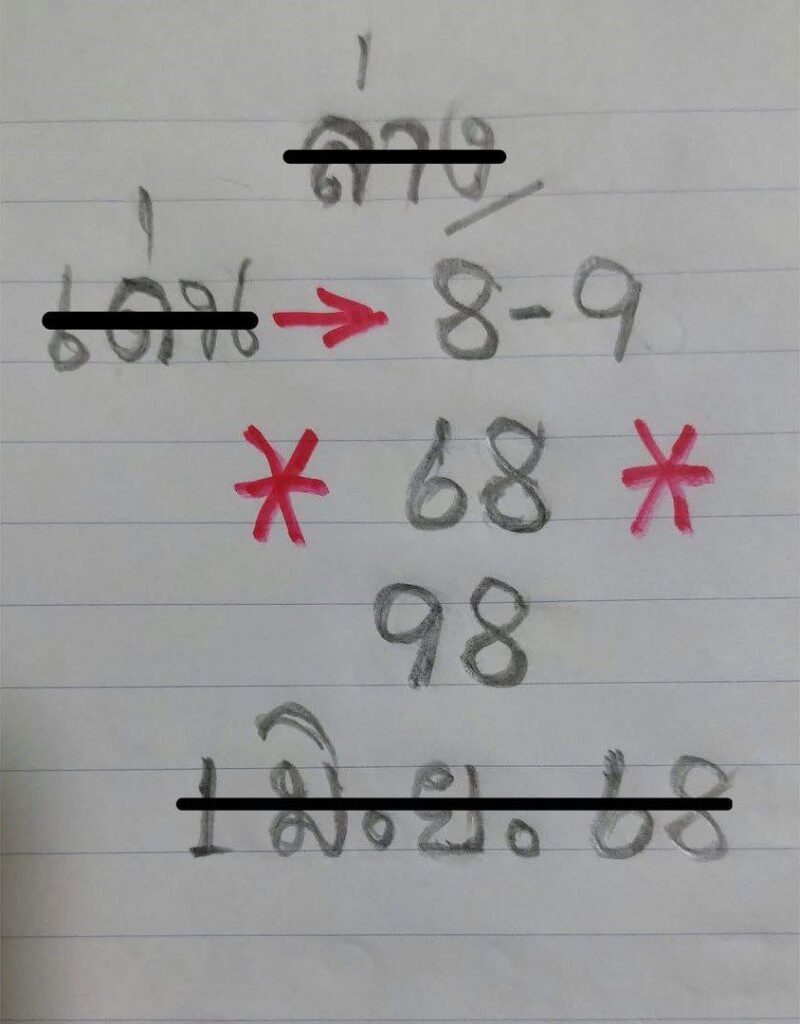 ล่าง
เด่น → 8-9
* 68 *
98
1 มิ.ย. 68